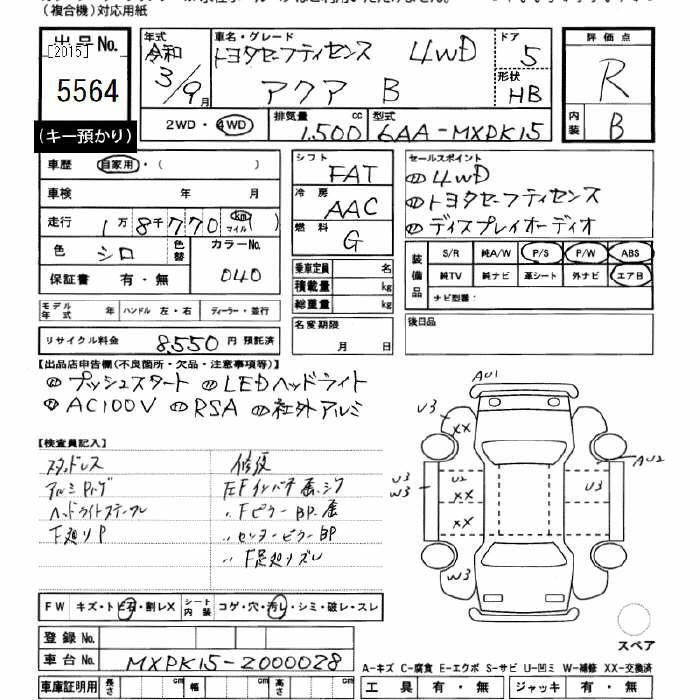 (複合機)対応用紙
出品No.
[2015]
5564
(キー預かり)
年式 令和 3/9月
車名・グレード トヨタセーフティセンス 4WD
アクア B
ドア 5
形状 HB
評価点 R
内装 B
2WD・4WD
排気量 1.500 cc
型式 6AA-MXPK15
車歴 自家用・( )
車検 年 月
走行 1万8千770 km マイル ( )
色 シロ 色替 カラーNo. 040
保証書 有・無
シフト FAT
冷房 AAC
燃料 G
乗車定員 名
積載量 kg
総重量 kg
セールスポイント
4WD
トヨタセーフティセンス
ディスプレイオーディオ
装備品 S/R 純A/W P/S P/W ABS
純TV 純ナビ 革シート 外ナビ エアB
ナビ型番:
モデル年式 年 ハンドル 左・右 ディーラー・並行
名変期限 月 日
後日品
リサイクル料金 8550 円 預託済
【出品店申告欄(不良箇所・欠品・注意事項等)】
プッシュスタート LEDヘッドライト
AC100V RSA 社外アルミ
【検査員記入】
スタッドレス
ヘッドライトスチーム
下廻りP
修復
〃 Fピラー BP
〃 センターピラー BP
〃 F足廻りズレ
AU1
U3
XX
AU2
U3
W3
U2
XX
XX
U3
W3
スペア
FW キズ・トビ石・割レX シート内装 コゲ・穴・汚レ・シミ・破レ・スレ
登録No.
車台No. MXPK15-2000028
A-キズ C-腐食 E-エクボ S-サビ U-凹ミ W-補修 XX-交換済
車庫証明用 長さ cm 幅 cm 高さ cm
工具 有・無 ジャッキ 有・無